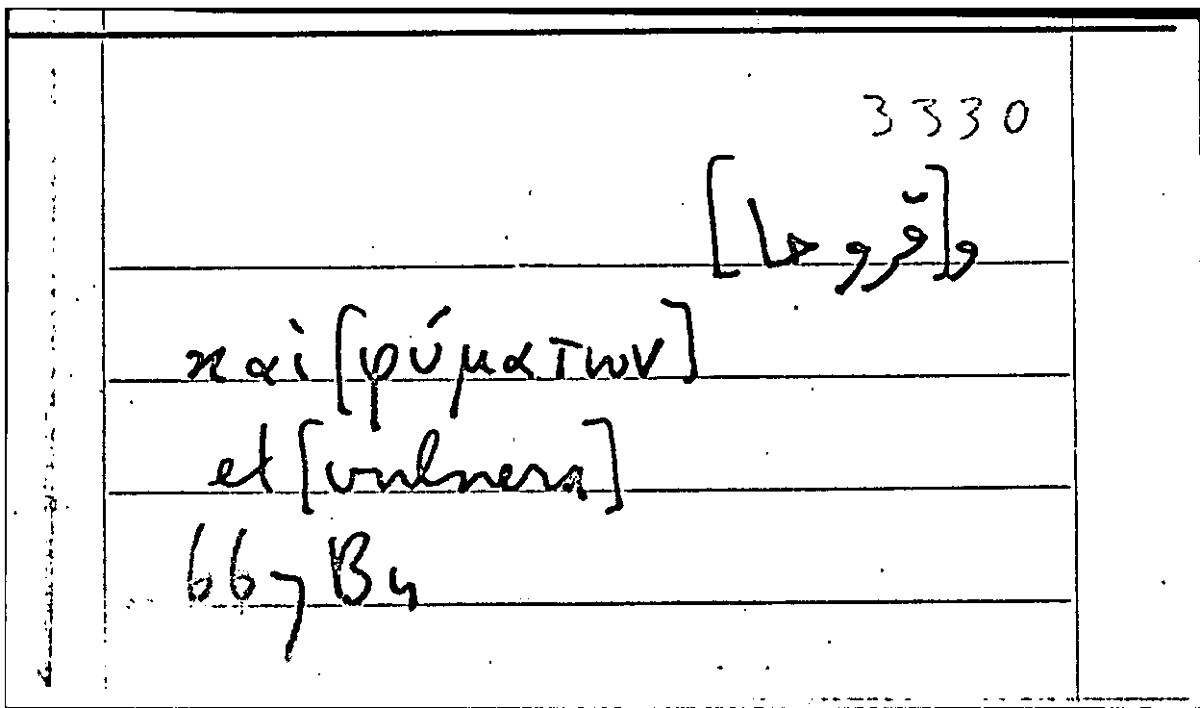 3330
و[قروحا]
καὶ [φύματων]
et [vulnera]
667 B4